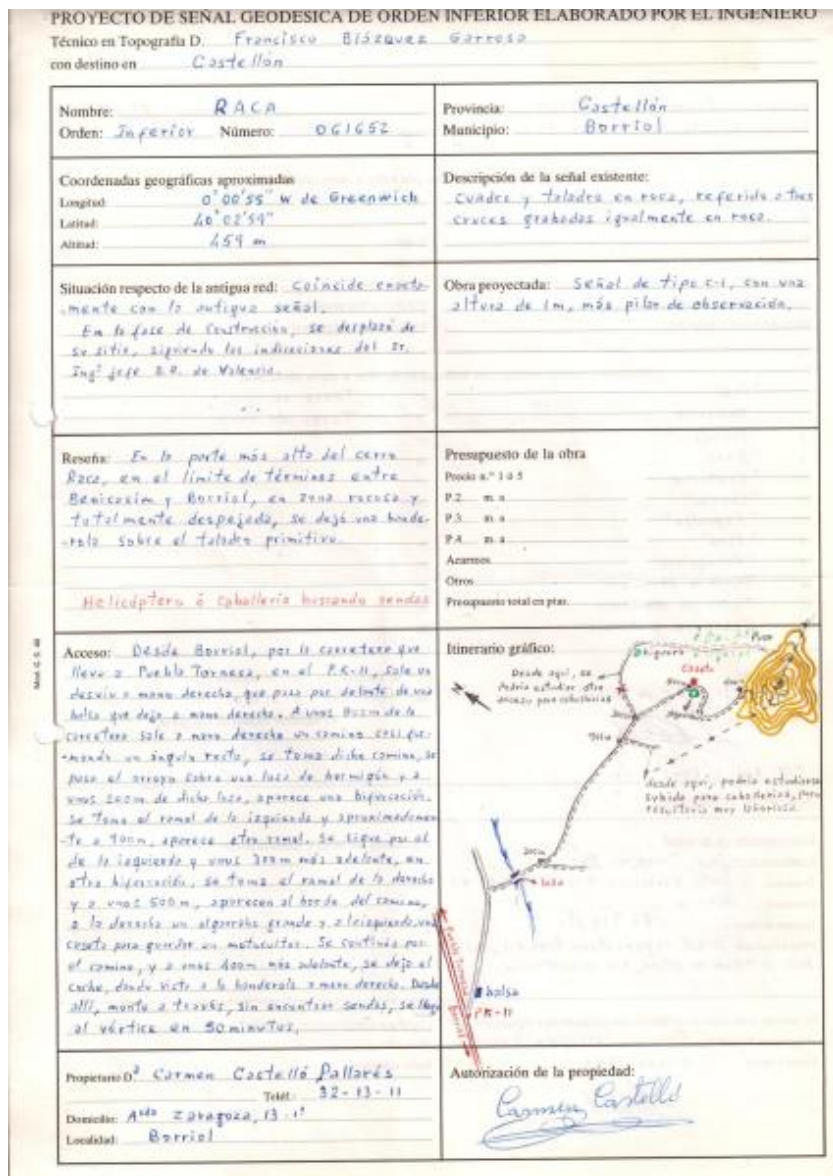 PROYECTO DE SEÑAL GEODESICA DE ORDEN INFERIOR ELABORADO POR EL INGENIERO
Técnico en Topografía D. Francisco Blázquez Garroso
con destino en Castellón
Nombre: RACA
Orden: Inferior Número: 061652
Provincia: Castellón
Municipio: Borriol
Coordenadas geográficas aproximadas
Longitud: 0°00'55" W de Greenwich
Latitud: 40°02'59"
Altitud: 459 m
Descripción de la señal existente:
Cuadro y taladro en roca, referido a tres
cruces grabadas igualmente en roca.
Situación respecto de la antigua red: Coincide exacta-
-mente con la antigua señal.
En la fase de Construcción, se desplazó de
su sitio, siguiendo las indicaciones del Sr.
Ingº jefe de Valencia.
...
Obra proyectada: Señal de tipo C-1, con una
altura de 1m, más pilar de observación.
Reseña: En la parte más alta del cerro
Raca, en el límite de términos entre
Benicasim y Borriol, en zona rocosa y
totalmente despejada, se dejó una bande-
-rola sobre el taladro primitivo.
Helicóptero ó Caballería buscando sendas
Presupuesto de la obra
Precio n.º 1 ó 5
P.2 m. a
P.3 m. a
P.4 m. a
Acarreos
Otros
Presupuesto total en ptas.
Mod. G. S. 40
Acceso: Desde Borriol, por la carretera que
lleva a Puebla Tornesa, en el P.K-11, sale un
desvío a mano derecha, que pasa por delante de una
balsa que deja a mano derecha. A unos de la
carretera sale a mano derecha un camino casi for-
-mando un ángulo recto, se toma dicho camino, se
pasa el arroyo sobre una losa de hormigón y a
unos 200m de dicha losa, aparece una bifurcación.
Se toma el ramal de la izquierda y aproximadamen-
-te a 900m, aparece otro ramal. Se sigue por el
de la izquierda y unos 300m más adelante, en
otra bifurcación, se toma el ramal de la derecha
y a unos 500m, aparecen al borde del camino,
a la derecha un algarrobo grande y a la izquierda, una
caseta para guardar un motocultor. Se continúa por
el camino, y a unos 400m más adelante, se deja el
coche, dando vista a la banderola a mano derecha. Desde
allí, monte a través, sin encontrar sendas, se llega
al vértice en 50 minutos.
Itinerario gráfico:
Desde aquí, se
Podría estudiar otro
acceso para caballerías
Caseta
desde aquí, podría estudiarse
subida para caballerías, pero
resultaría muy laboriosa.
losa
balsa
PK-11
Puebla Tornesa
Borriol
Propietario Dª Carmen Castelló Pallarés
Teléf.: 32-13-11
Domicilio: Avda Zaragoza, 13-1º
Localidad: Borriol
Autorización de la propiedad:
Carmen Castelló